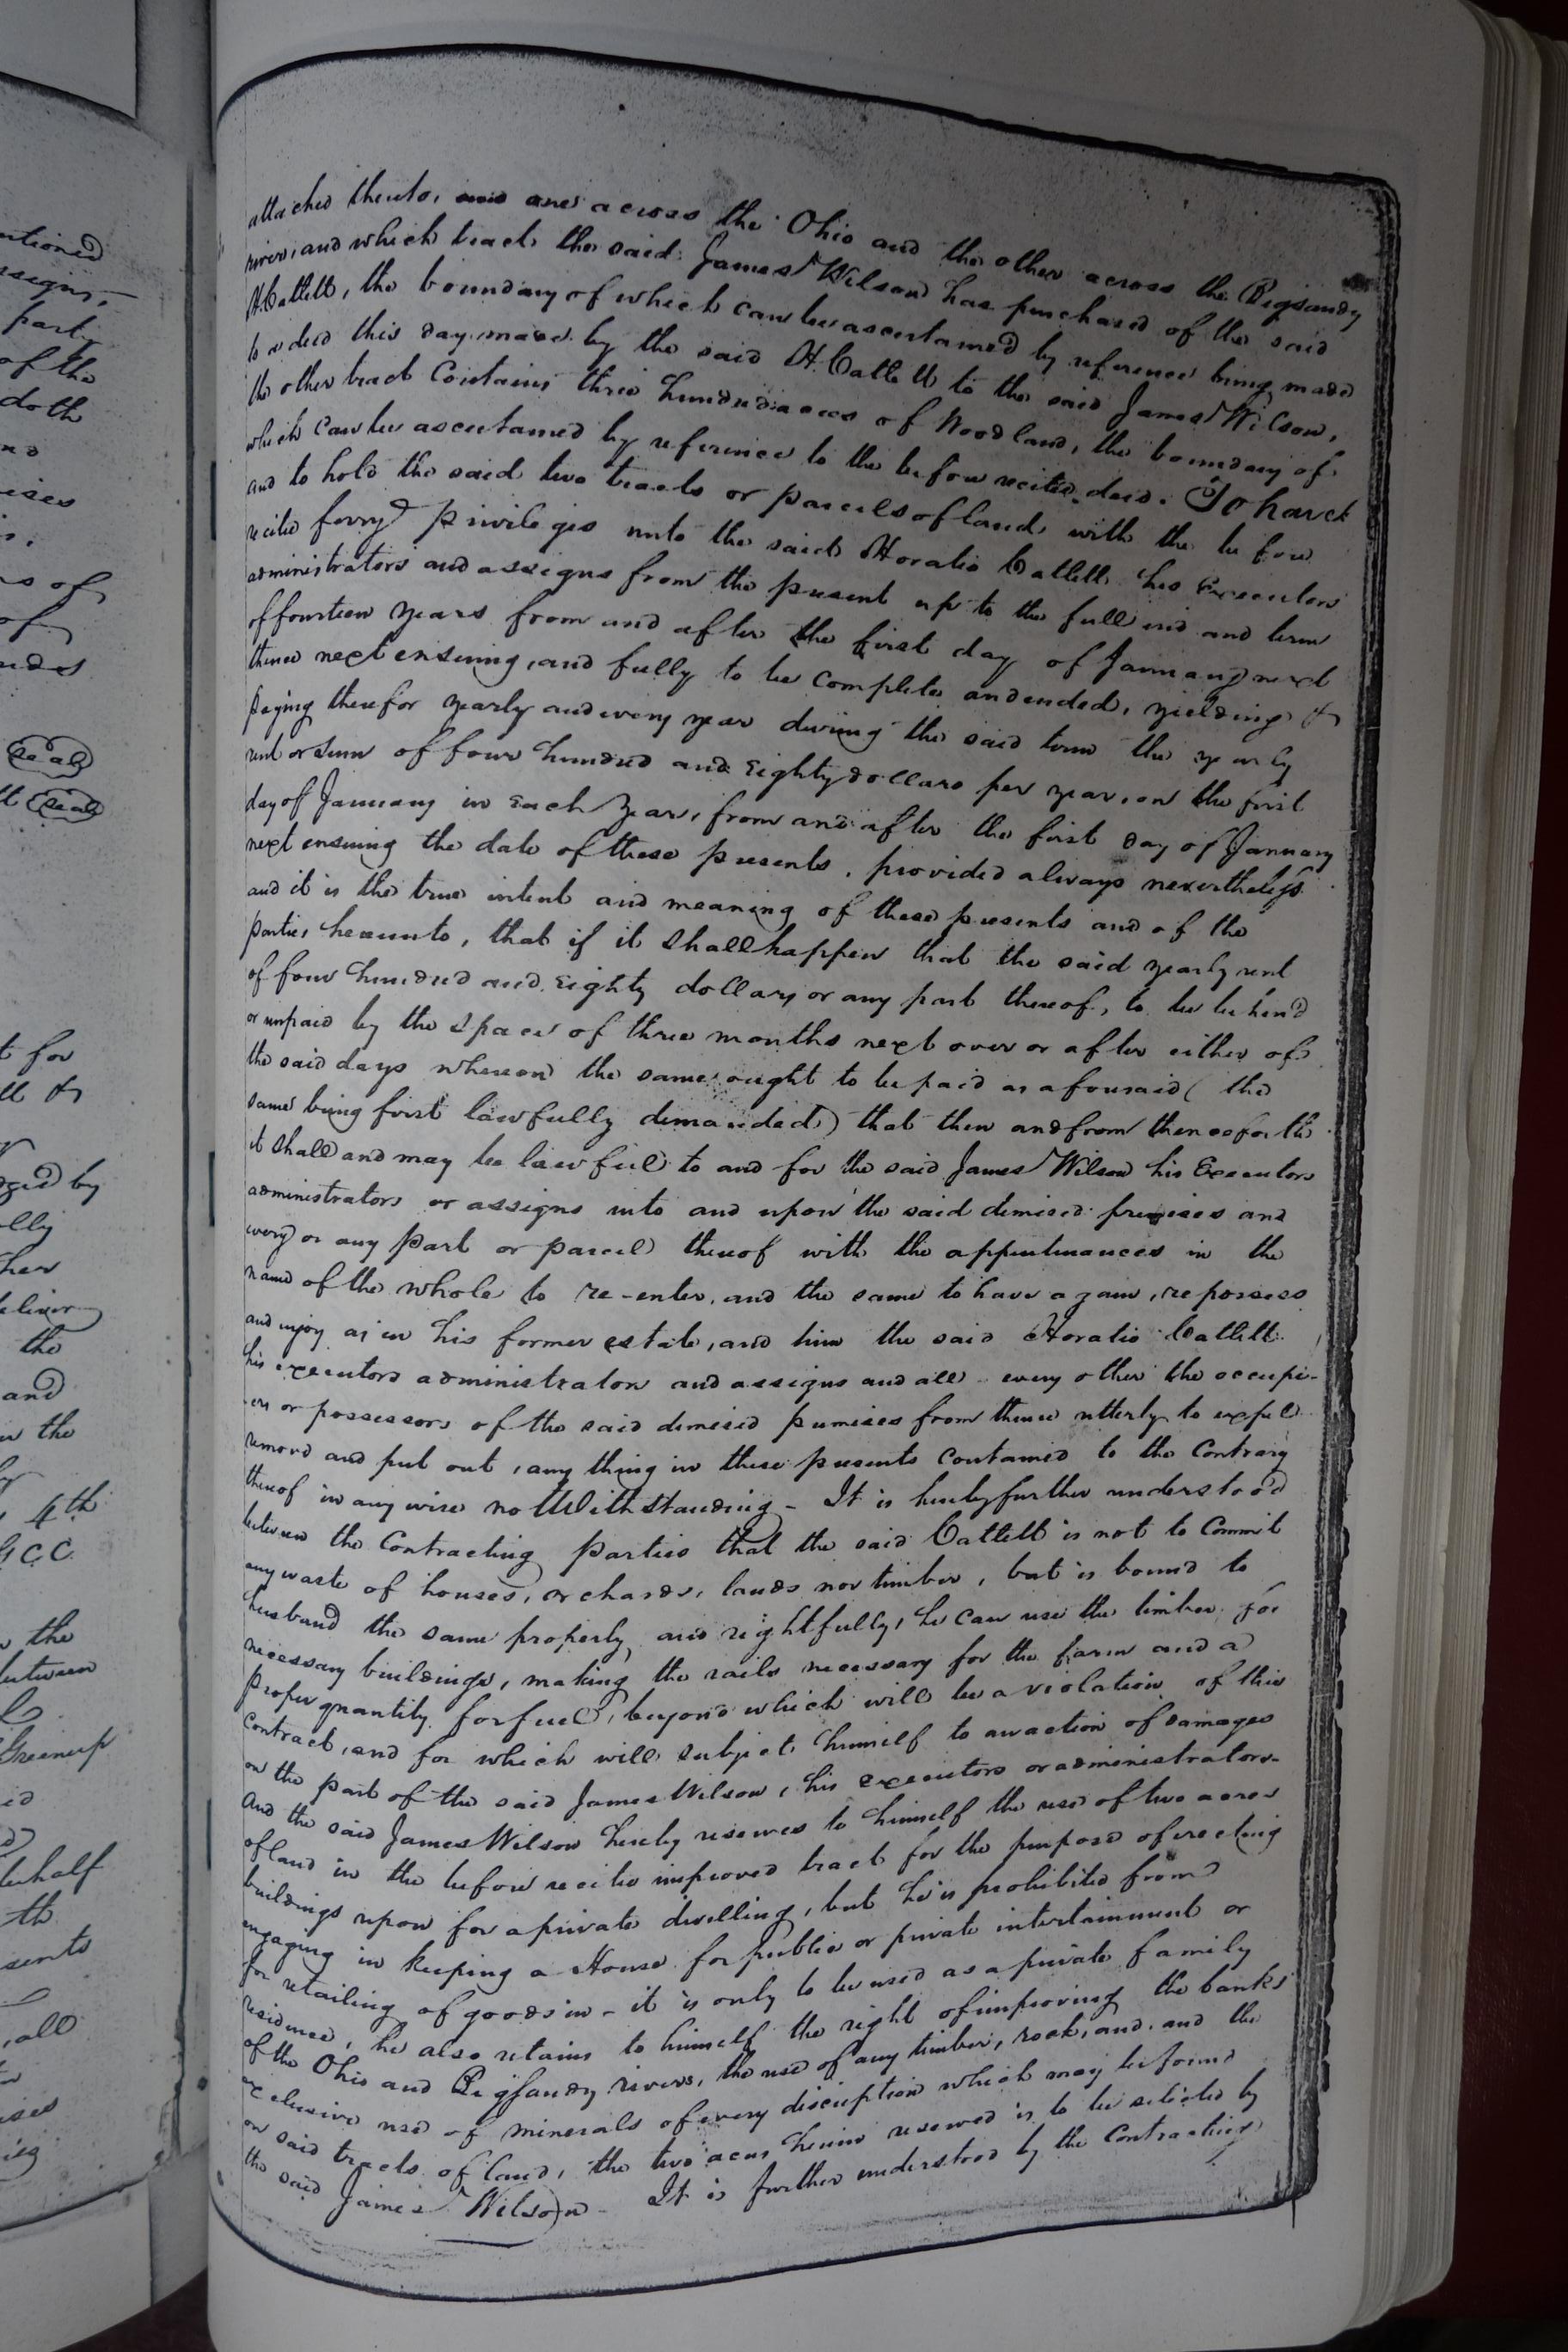 attached thereto, one across the Ohio and the other across the Bigsandy
river, and which tract the said James Wilson has purchased of the said
H. Catlett, the boundary of which can be ascertained by reference being made
to a deed this day made by the said H. Catlett to the said James Wilson,
the other tract Contains three hundred acres of Woodland, the boundary of
which can be ascertained by reference to the before recited deed. To have
and to hold the said two tracts or parcels of land with the before
recited ferry privileges unto the said Horatio Catlett his Executors
administrators and assigns from the present up to the full end and term
of fourteen years from and after the first day of January next
thence next ensuing, and fully to be Complete and ended, yielding &
paying therefor yearly and every year during the said term the yearly
rent or sum of four hundred and Eighty dollars per year, on the first
day of January in Each Year, from and after the first day of January
next ensuing the date of these presents, provided always nevertheless
and it is the true intent and meaning of these presents and of the
parties hereunto, that if it shall happen that the said yearly rent
of four hundred and Eighty dollars or any part thereof, to be behind
or unpaid by the space of three months next over or after either of
the said days whereon the same ought to be paid as aforesaid (the
same being first lawfully demanded) that then and from thenceforth
it shall and may be lawful to and for the said James Wilson his Executors
administrators or assigns into and upon the said demised premises and
every or any part or parcel thereof with the appurtenances in the
name of the whole to re-enter, and the same to have again, repossess
and enjoy as in his former estate, and him the said Horatio Catlett
his executors administrators and assigns and all every other the occupi-
-ers or possessors of the said demised premises from thence utterly to expel
remove and put out, any thing in these presents contained to the Contrary
thereof in any wise notWithstanding - It is hereby further understood
between the Contracting parties that the said Catlett is not to Commit
any waste of houses, orchards, lands nor timber, but is bound to
husband the same properly and rightfully, he can use the timber for
necessary buildings, making the rails necessary for the farm and a
proper quantity for fuel, beyond which will be a violation of this
contract, and for which will subject himself to an action of damages
on the part of the said James Wilson, his executors or administrators-
And the said James Wilson hereby reserves to himself the use of two acres
of land in the before recited improved tract for the purpose of erecting
buildings upon for a private dwelling, but he is prohibited from
engaging in keeping a House for public or private intertainment or
for retailing of goods in - it is only to be used as a private family
residence, he also retains to himself the right of improving the banks
of the Ohio and Bigsandy rivers, the use of any timber, rock, and. and the
exclusive use of minerals of every discription which may be found
on said tracts of land, the two acres herein reserved is to be selected by
the said James Wilson - It is further understood by the Contracting